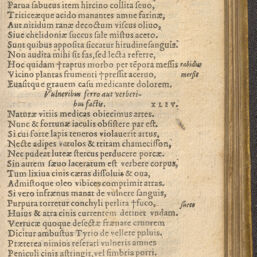 Parua sabucus item hircino collita seuo,
Triticeæque acido manantes amne farinæ,
Aut nitidum ranæ decoctum viscus oliuo,
Siue chelidoniæ succus sale mistus aceto.
Sunt quibus apposita siccatur hirudine sanguis.
Non audita mihi sit fas, sed lecta referre.
Hoc quidam †raptus morbo per tēpora messis rabidus
Vicino plantas frumenti †pressit aceruo, mersit
Euasitque grauem casu medicante dolorem.
Vulneribus ferro aut verberi-
bus factis. XLIV.
Naturæ vitiis medicas obiecimus artes.
Nunc & fortunæ iaculis obsistere par est.
Si cui forte lapis teneros violauerit artus,
Necte adipes vatulos & tritam chamæcisson,
Nec pudeat luteæ stercus perducere porcæ.
Sin autem sæuo laceratum est verbere corpus,
Tum lixiua cinis cæras dissoluit & oua,
Admistoque oleo vibices comprimit atras.
Si vero infrænus manat de vulnere sanguis,
Purpura torretur conchyli perlita †fuco, succo
Huius & atra cinis currentem detinet undam.
Verrucæ quoque defectæ frænare cruorem
Dicitur ambustus Tyrio de vellere puluis.
Præterea nimios referati vulneris amnes
Peniculi cinis astringit, vel fimbria porri.